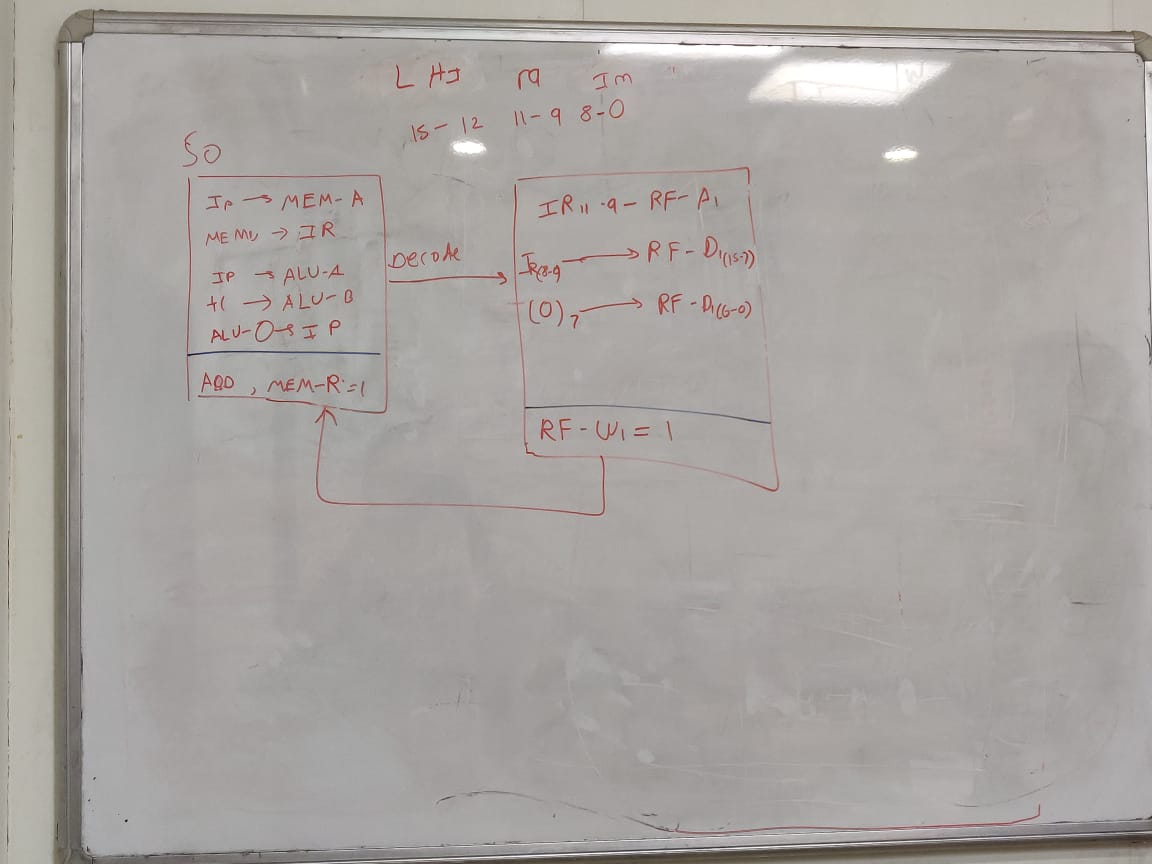 LHI ra Im
15-12 11-9 8-0
S0
IP → MEM-A
→ IR
IP → ALU-A
+1 → ALU-B
ALU-O → IP
ADD , MEM-R=1
Decode
IR11-9 - RF-A1
→ RF-D1(15-7)
(0)7 → RF-D1(6-0)
RF-W1 = 1